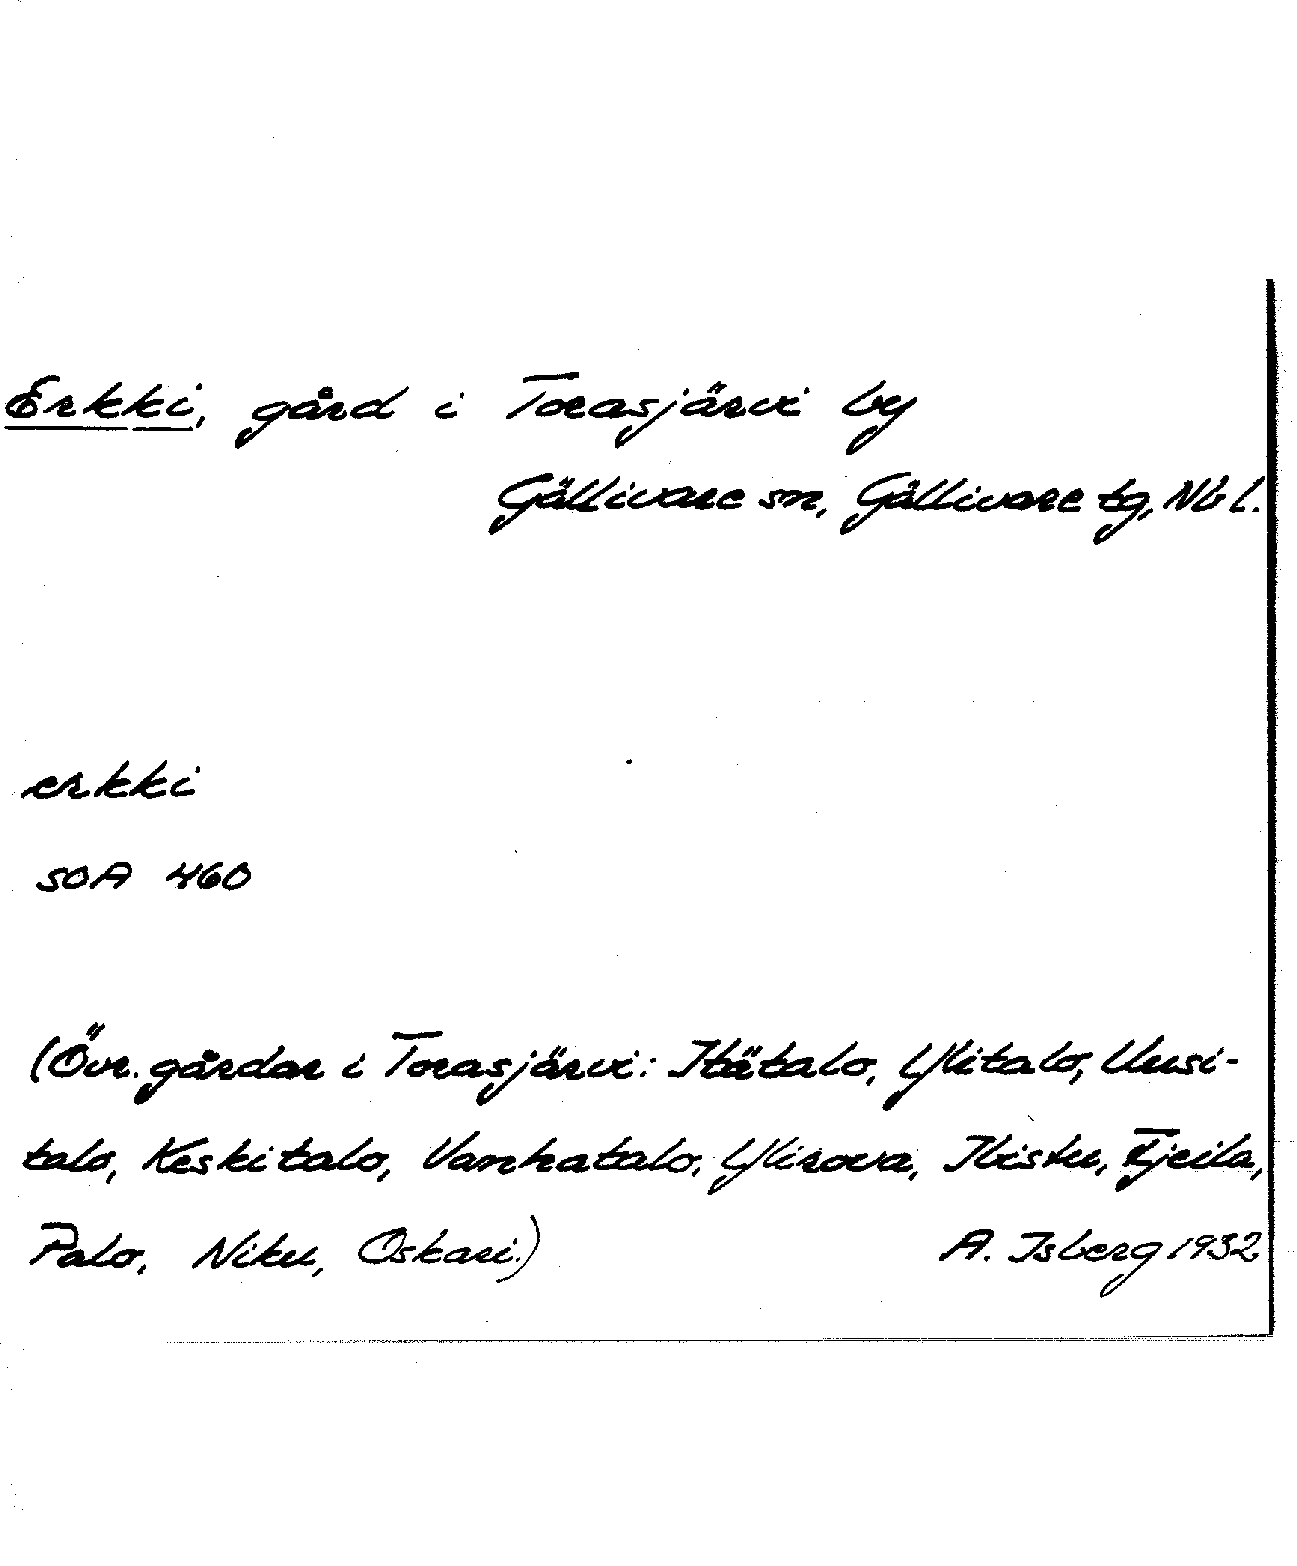 Erkki, gård i Torasjärvi by
Gällivare sn, Gällivare tg, Nb l.
erkki
SOA 460
(Övr. gårdar i Torasjärvi: Itätalo, Ylitalo, Uusi-
talo, Keskitalo, Vanhatalo, Ylirova, Tjeila,
Palo, Niku, Oskari.)
A. Isberg 1932